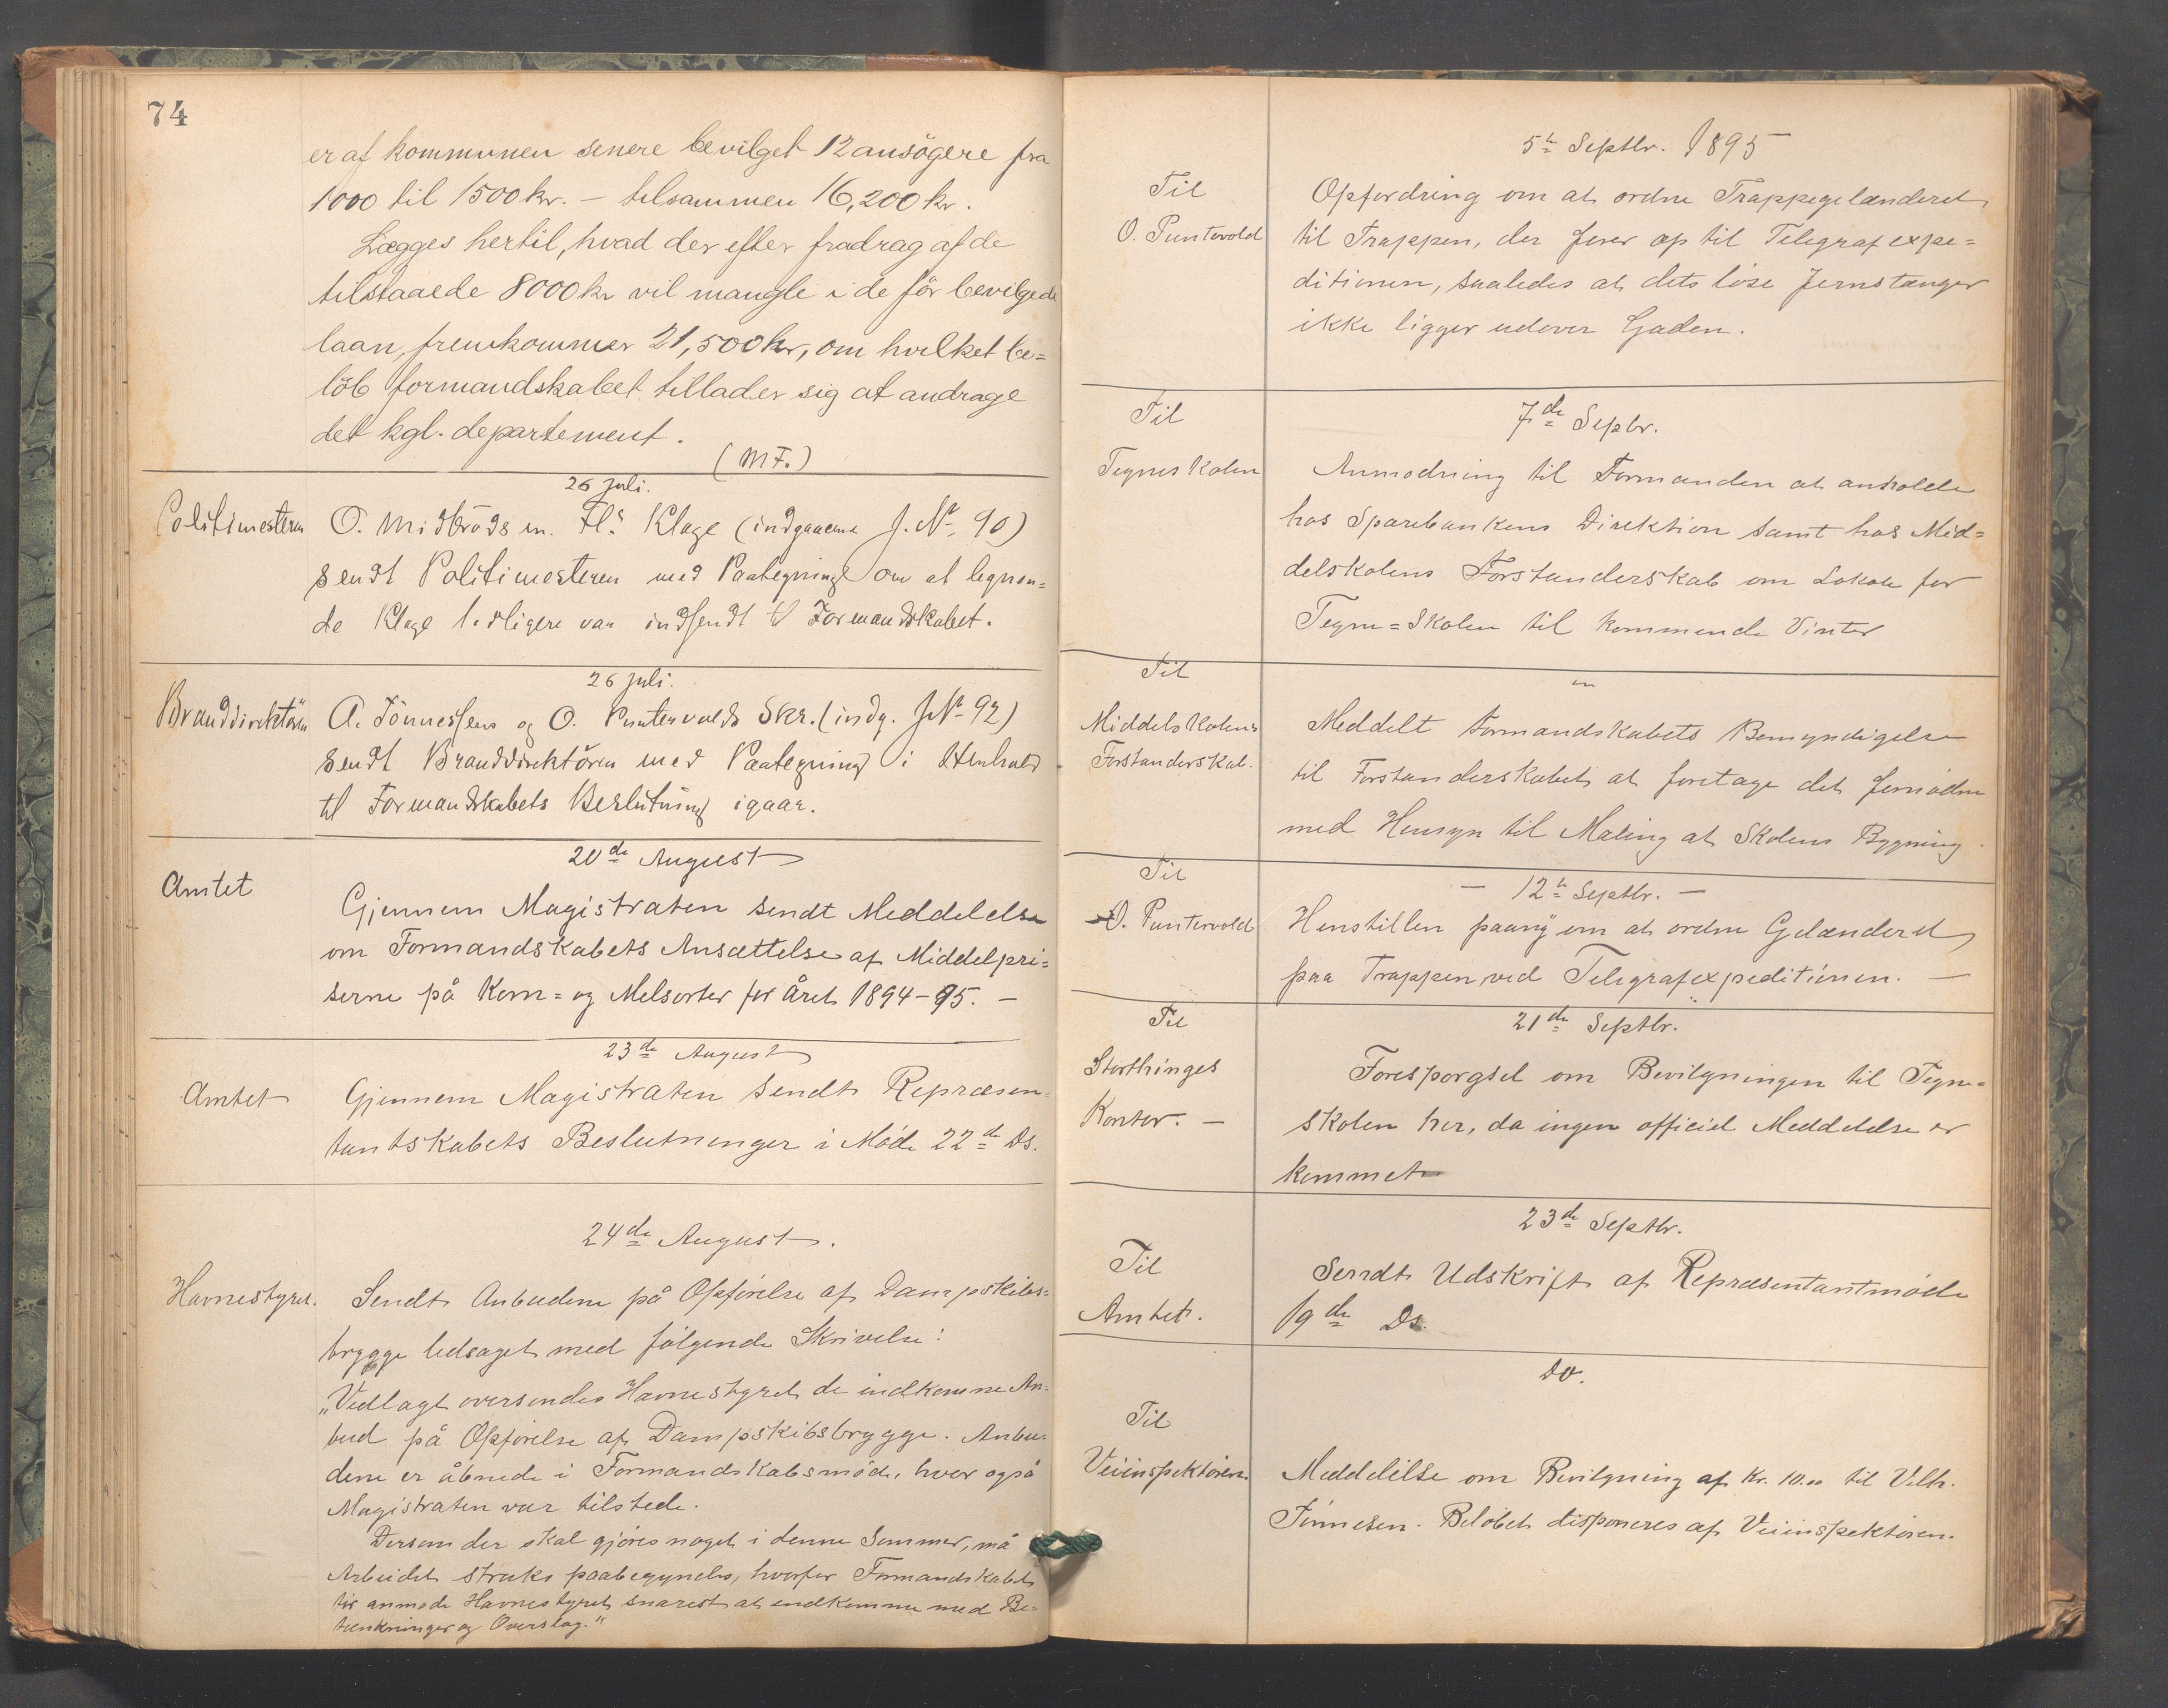 74
er af kommunen senere bevilget 12 ansögere fra
1000 til 1500 kr. – tilsammen 16,200 kr.
Lægges hertil, hvad der efter fradrag af de
tilstaaede 8000 kr vil mangle i de för bevilgede
laan, fremkommer 21,500 kr, om hvilket be=
löb formandskabet tillader sig at andrage
det kgl. departement.
(MF.)
26 juli.
Politimesteren
O. Midbröds m. Fl.s Klage (indgaaende J. No 90)
sendt Politimesteren med Paategning om at lignen-
de Klage tidligere var indsendt til Formandskabet.
26 juli.
Branddirektören
A. Tönnessens og O. Puntervolds Skr. (indg. J No 92)
sendt Branddirektören med Paategning i Henhold
til Formandskabets Beslutning igaar.
20de August
Amtet
Gjennem Magistraten sendt Meddelelse
om Formandskabets Ansættelse af Middelpri=
serne på Korn= og Melsorter for Året 1894–95. –
23de August
Amtet
Gjennem Magistraten sendt Repræsen=
tantskabets Beslutninger i Möde 22de Ds.
24de August.
Havnestyret.
Sendt Anbudene på Opförelse af Dampskibs=
brygge ledsaget med fölgende Skrivelse:
„Vedlagt oversendes Havnestyret de indkomne An=
bud på Opförelse af Dampskibsbrygge. Anbu=
dene er åbnede i Formandskabsmöde, hvor også
Magistraten var tilstede.
Dersom der skal gjöres noget i denne Sommer, må
Arbeidet straks paabegyndes, hvorfor Formandskabet
tör anmode Havnestyret snarest at indkomme med Be=
tænkninger og Overslag."
5te Septbr. 1895
Til
O. Puntervold
Opfordring om at ordne Trappegelænderet
til Trappen, der förer op til Telegrafexpe=
ditionen, saaledes at dets löse Jernstænger
ikke ligger udover Gaden.
7de Septbr.
Til
Tegneskolen
Anmodning til Formanden at anholde
hos Sparebankens Direktion samt hos Mid=
delskolens Forstanderskab om Lokale for
Tegne=Skolen til kommende Vinter
Til
Middelskolens
Forstanderskab.
Meddelt Formandskabets Bemyndigelse
til Forstanderskabet at foretage det fornödne
med Hensyn til Maling at Skolens Bygning.
– 12te Septbr. –
Til
O. Puntervold
Henstillen paany om at ordne Gelænderet
paa Trappen ved Telegrafexpeditionen. –
21de Septbr.
Til
Storthinges
Kontor. –
Forespörgsel om Bevilgningen til Tegne=
skolen her, da ingen officiel Meddelelse er
kommet
23de Septbr.
Til
Amtet.
Sendt Udskrift af Repræsentantmöde
19de Ds.
Do.
Til
Veiinspektören.
Meddelelse om Bevilgning af Kr. 10.00 til Velh.
Tönnesen. Belöbet disponeres af Veiinspektören.